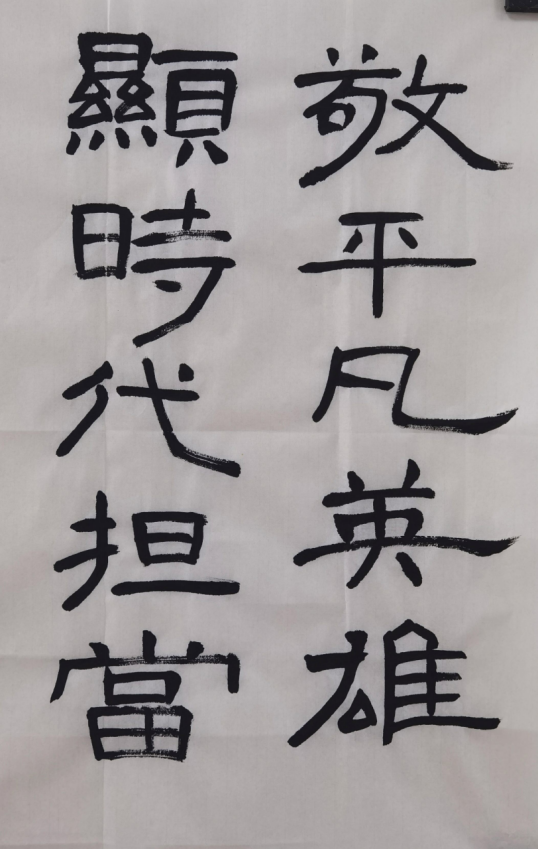 敬平凡英雄
顯時代担當